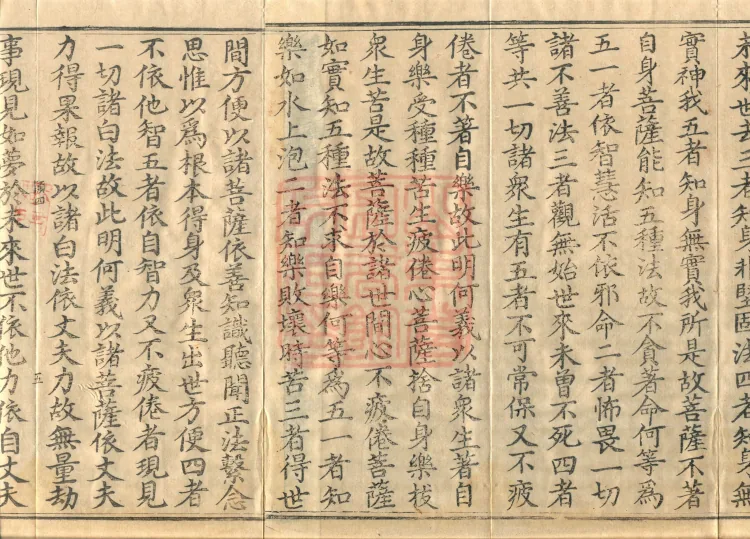 未來世去三者知身非堅固法四者知身無
實神我五者知身無實我所是故菩薩不著
自身菩薩能知五種法故不貪著命何等爲
五一者依智慧活不依邪命二者怖畏一切
諸不善法三者觀無始世來未曾不死四者
等共一切諸衆生有五者不可常保又不疲
倦者不著自樂故此明何義以諸衆生著自
身樂受種種苦生疲倦心菩薩捨自身樂拔
衆生苦是故菩薩於諸世間心不疲倦菩薩
如實知五種法不求自樂何等爲五一者知
樂如水上泡二者知樂敗壞時苦三者得世
間方便以諸菩薩依善知識聽聞正法繫念
思惟以爲根本得身及衆生出世方便四者
不依他智五者依自智力又不疲倦者現見
一切諸白法故此明何義以諸菩薩依丈夫
力得果報故以諸白法依丈夫力故無量劫
事現見如夢於未來世不依他力依自丈夫
五